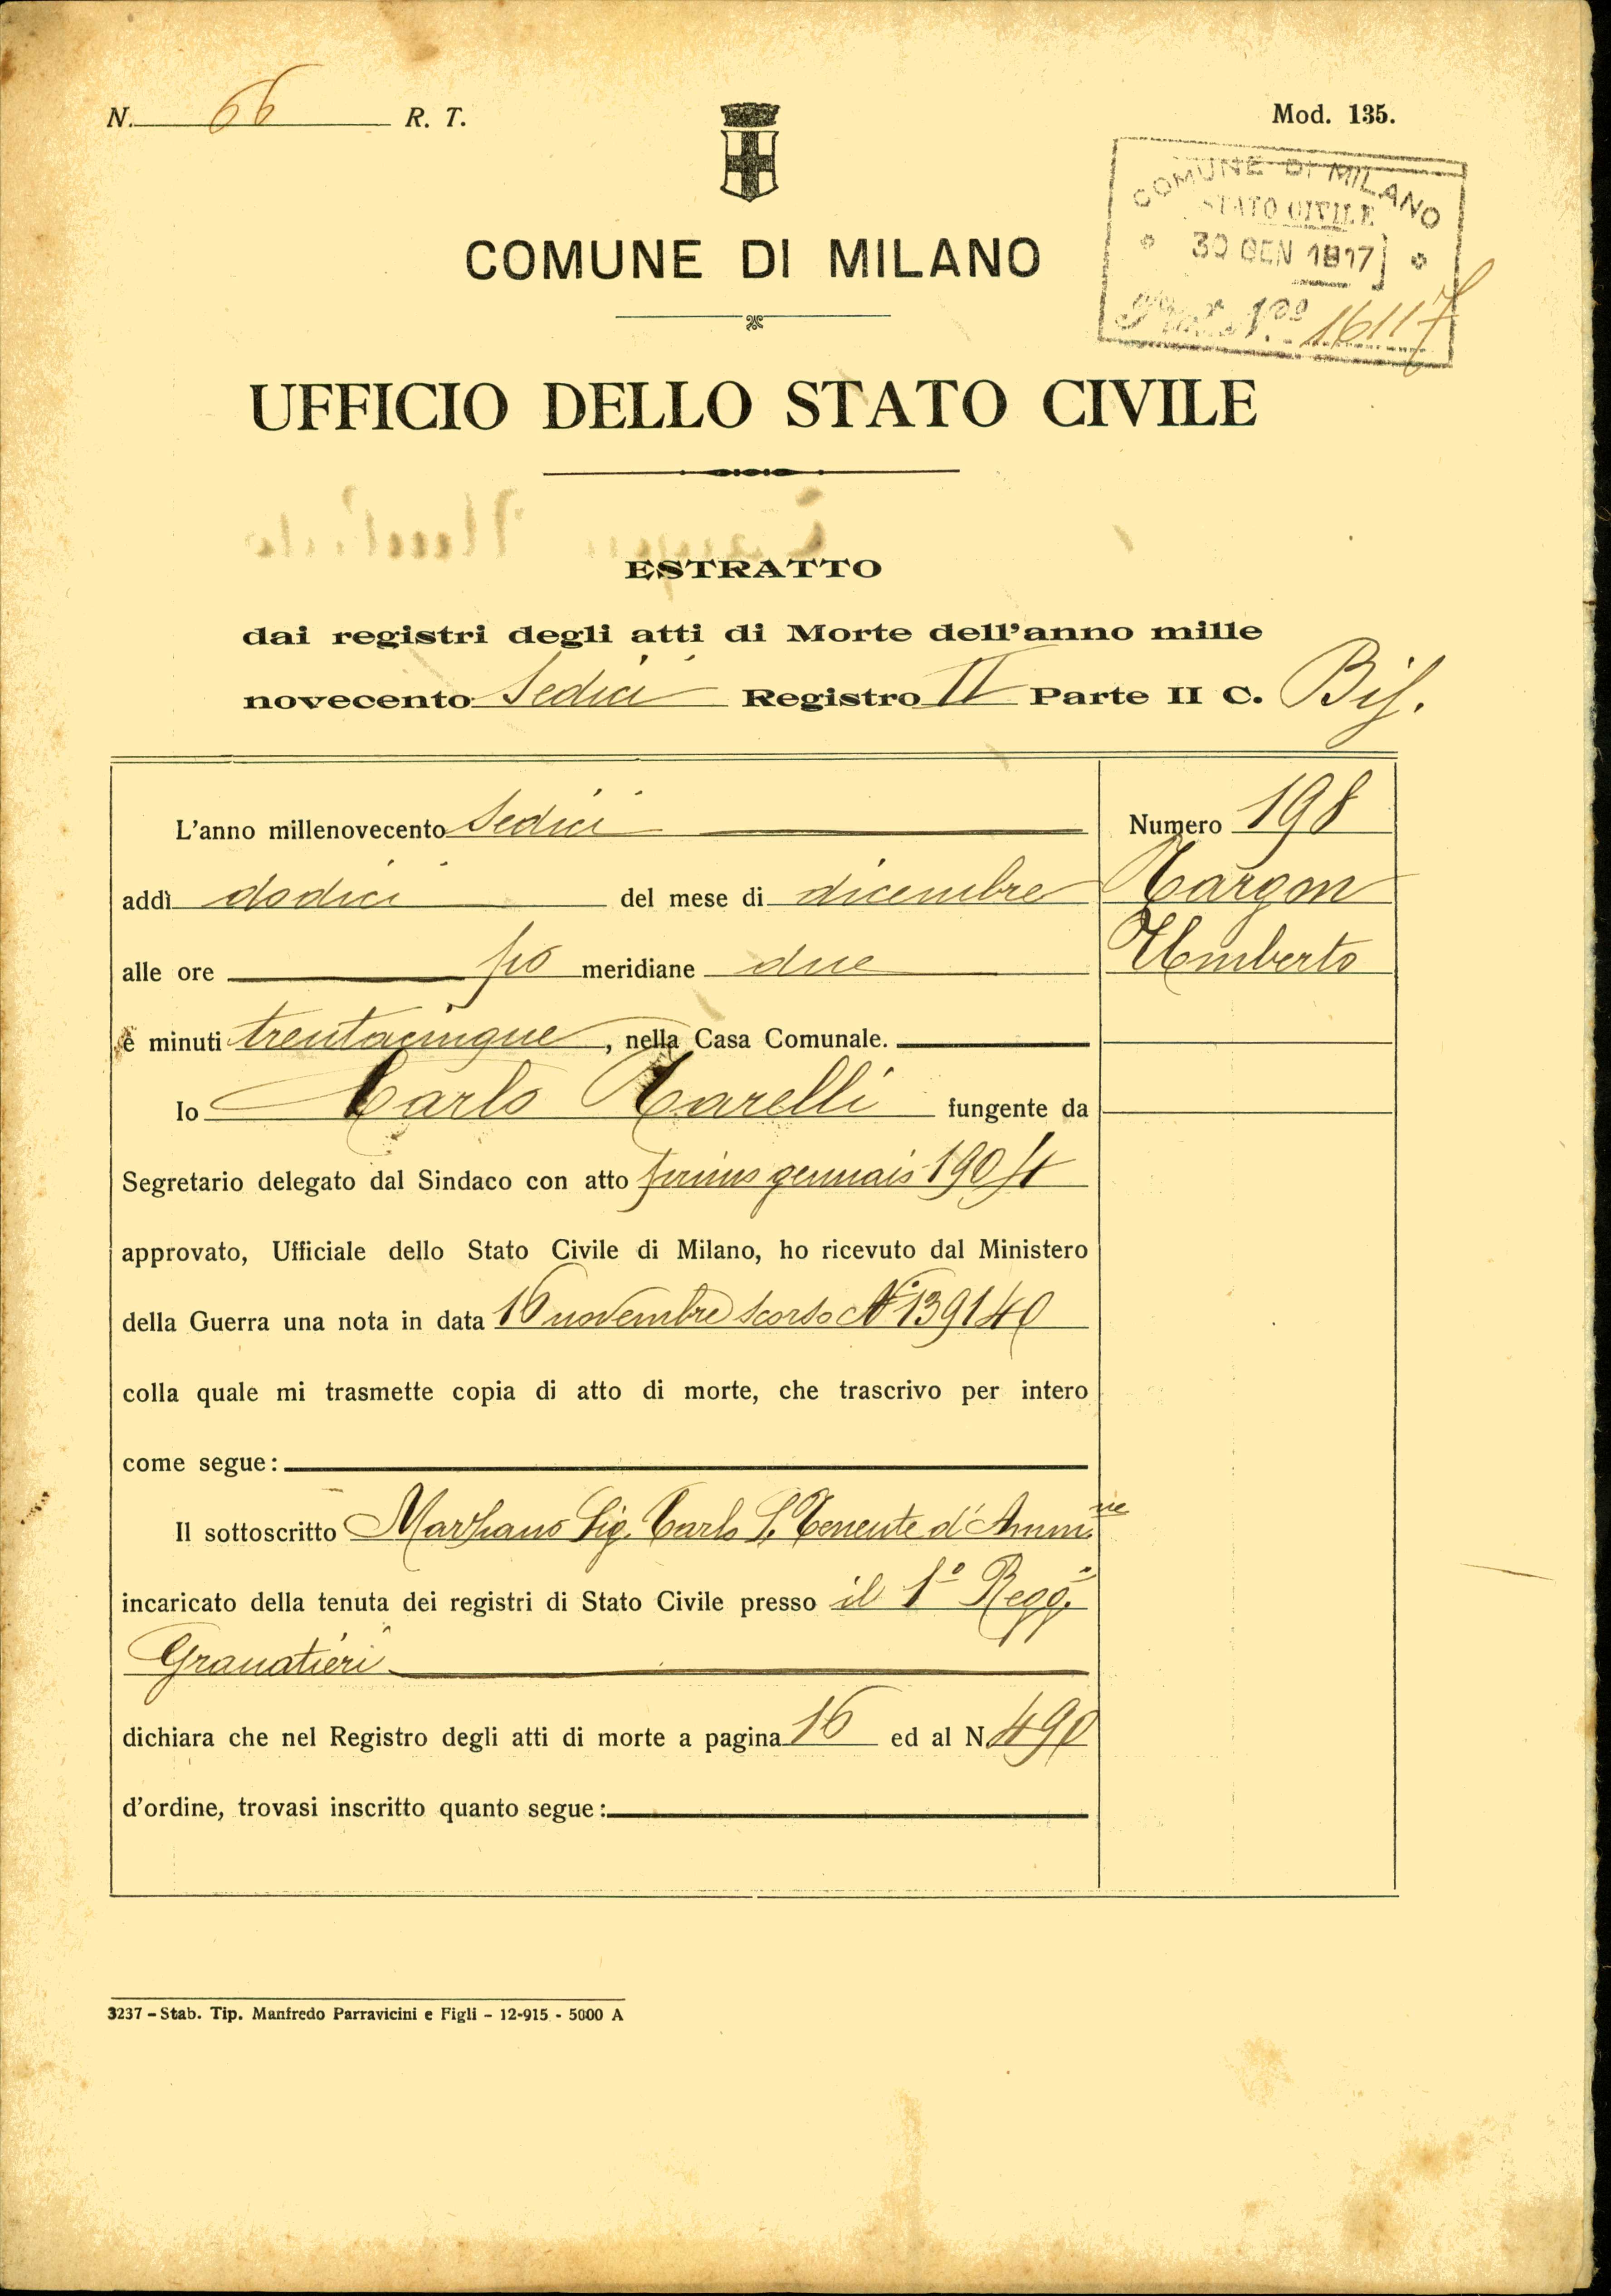 N. 66 R. T.
Mod. 135.
COMUNE DI MILANO
STATO CIVILE
30 GEN 1917
Prot. N.º 16117
COMUNE DI MILANO
UFFICIO DELLO STATO CIVILE
ESTRATTO
dai registri degli atti di Morte dell'anno mille
novecento Sedici Registro II Parte II C. Bis.
L'anno millenovecento Sedici
Numero 198
addì dodici del mese di dicembre
Targon
alle ore po meridiane due
Umberto
e minuti trentacinque, nella Casa Comunale.
Io Carlo Tarelli fungente da
Segretario delegato dal Sindaco con atto primo gennaio 1904
approvato, Ufficiale dello Stato Civile di Milano, ho ricevuto dal Ministero
della Guerra una nota in data 16 novembre scorso N° 139140
colla quale mi trasmette copia di atto di morte, che trascrivo per intero
come segue:
Il sottoscritto Sig. Carlo S. Tenente d' Amm.ne
incaricato della tenuta dei registri di Stato Civile presso il 1° Regg.°
Granatieri
dichiara che nel Registro degli atti di morte a pagina 16 ed al N. 490
d'ordine, trovasi inscritto quanto segue:
3237 - Stab. Tip. Manfredo Parravicini e Figli - 12-915 - 5000 A